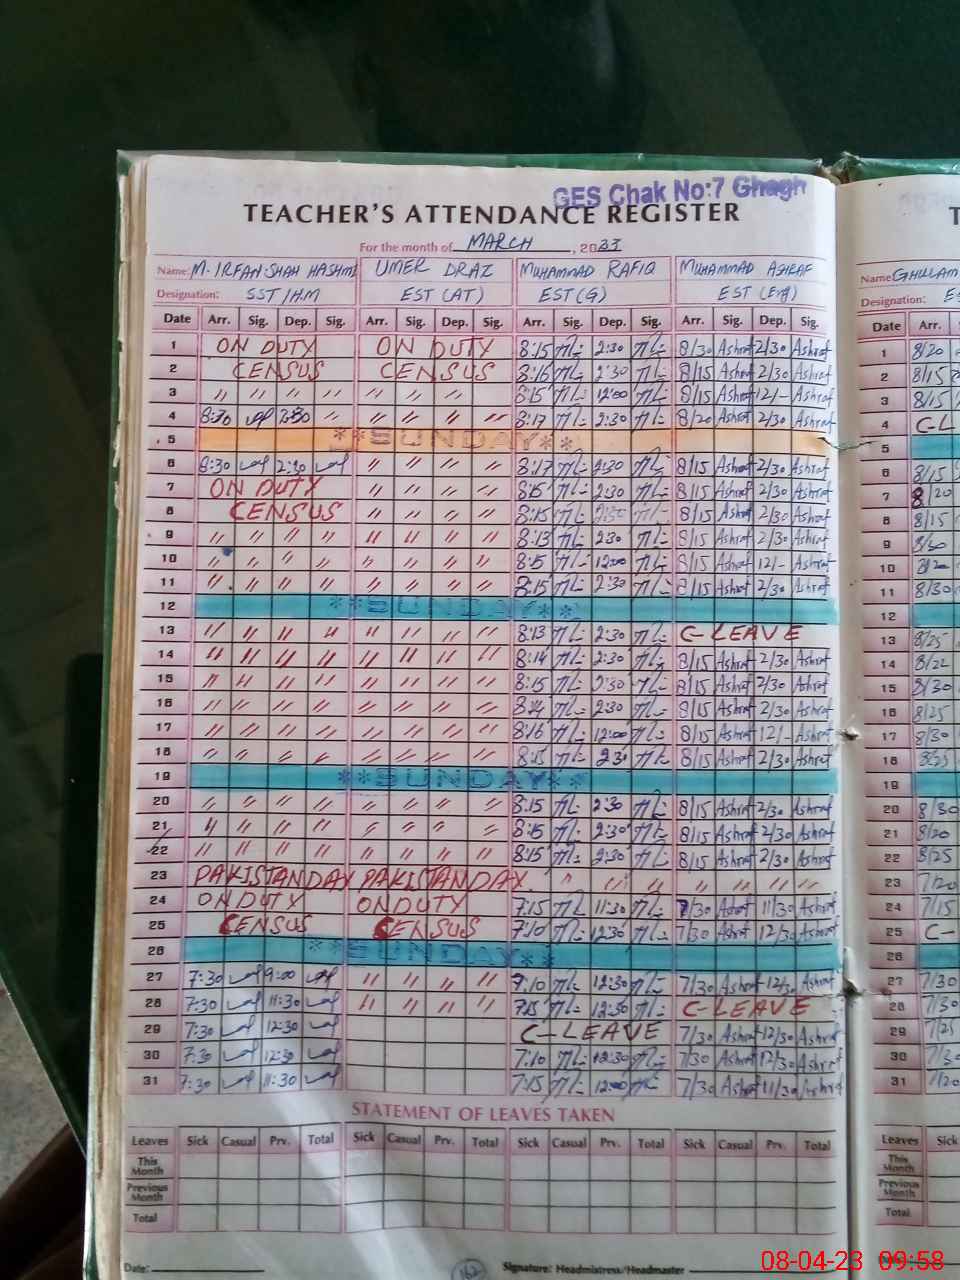 GES Chak No:7 Ghagh
TEACHER'S ATTENDANCE REGISTER
For the month of MARCH, 2023
Name: M. IRFAN SHAH HASHMI UMER DRAZ MUHAMMAD RAFIQ MUHAMMAD ASHRAF Name: GHULAM
Designation: SST/H.M EST (AT) EST (G) EST (Eng) Designation:
Date Arr. Sig. Dep. Sig. Arr. Sig. Dep. Sig. Arr. Sig. Dep. Sig. Arr. Sig. Dep. Sig. Date Arr.
1 ON DUTY ON DUTY 8:15 2:30 8/30 Ashraf 2/30 Ashraf 1 8/20
2 CENSUS CENSUS 8:16 2:30 8/15 Ashraf 2/30 Ashraf 2 8/15
3 〃 〃 〃 〃 〃 〃 〃 8:15 12:00 8/15 Ashraf 12/- Ashraf 3 8/15
4 8:30 2:30 〃 〃 〃 〃 〃 8:17 2:30 8/20 Ashraf 2/30 Ashraf 4 C-L
5 **SUNDAY** 5
6 8:30 2:30 〃 〃 〃 〃 8:17 2:30 8/15 Ashraf 2/30 Ashraf 6 8/15
7 ON DUTY 〃 〃 〃 〃 8:15 2:30 8/15 Ashraf 2/30 Ashraf 7 8/20
8 CENSUS 〃 〃 〃 〃 8:15 2:30 8/15 Ashraf 2/30 Ashraf 8 8/15
9 〃 〃 〃 〃 〃 〃 〃 〃 8:13 2:30 8/15 Ashraf 2/30 Ashraf 9 8/30
10 〃 〃 〃 〃 〃 〃 〃 〃 8:15 12:00 8/15 Ashraf 12/- Ashraf 10
11 〃 〃 〃 〃 〃 〃 〃 〃 8:15 2:30 8/15 Ashraf 2/30 Ashraf 11 8/30
12 **SUNDAY** 12
13 〃 〃 〃 〃 〃 〃 〃 〃 8:13 2:30 C-LEAVE 13 8/25
14 〃 〃 〃 〃 〃 〃 〃 〃 8:14 2:30 8/15 Ashraf 2/30 Ashraf 14 8/22
15 〃 〃 〃 〃 〃 〃 〃 〃 8:15 2:30 8/15 Ashraf 2/30 Ashraf 15 8/30
16 〃 〃 〃 〃 〃 〃 〃 〃 8:14 2:30 8/15 Ashraf 2/30 Ashraf 16 8/25
17 〃 〃 〃 〃 〃 〃 〃 〃 8:16 12:00 8/15 Ashraf 12/- Ashraf 17 8/30
18 〃 〃 〃 〃 〃 〃 〃 〃 8:15 2:30 8/15 Ashraf 2/30 Ashraf 18 8/25
19 **SUNDAY** 19
20 〃 〃 〃 〃 〃 〃 〃 〃 8:15 2:30 8/15 Ashraf 2/30 Ashraf 20 8/30
21 〃 〃 〃 〃 〃 〃 〃 〃 8:15 2:30 8/15 Ashraf 2/30 Ashraf 21 8/20
22 〃 〃 〃 〃 〃 〃 〃 〃 8:15 2:30 8/15 Ashraf 2/30 Ashraf 22 8/25
23 PAKISTAN DAY PAKISTAN DAY 〃 〃 〃 〃 〃 〃 〃 23 7/20
24 ON DUTY ON DUTY 7:15 11:30 7/30 Ashraf 11/30 Ashraf 24 7/15
25 CENSUS CENSUS 7:10 12:30 7/30 Ashraf 12/30 Ashraf 25 C-
26 **SUNDAY** 26
27 7:30 9:00 〃 〃 〃 〃 7:10 12:30 7/30 Ashraf 12/30 Ashraf 27 7/30
28 7:30 11:30 〃 〃 〃 〃 7:15 12:30 C-LEAVE 28 7/30
29 7:30 12:30 C-LEAVE 7/30 Ashraf 12/30 Ashraf 29 7/25
30 7:30 12:30 7:10 12:30 7/30 Ashraf 12/30 Ashraf 30
31 7:30 11:30 7:15 12:00 7/30 Ashraf 11/30 Ashraf 31
STATEMENT OF LEAVES TAKEN
Leaves Sick Casual Prv. Total Sick Casual Prv. Total Sick Casual Prv. Total Sick Casual Prv. Total Leaves Sick
This Month This Month
Previous Month Previous Month
Total Total
Date: Signature: Headmistress/Headmaster
162
08-04-23 09:58